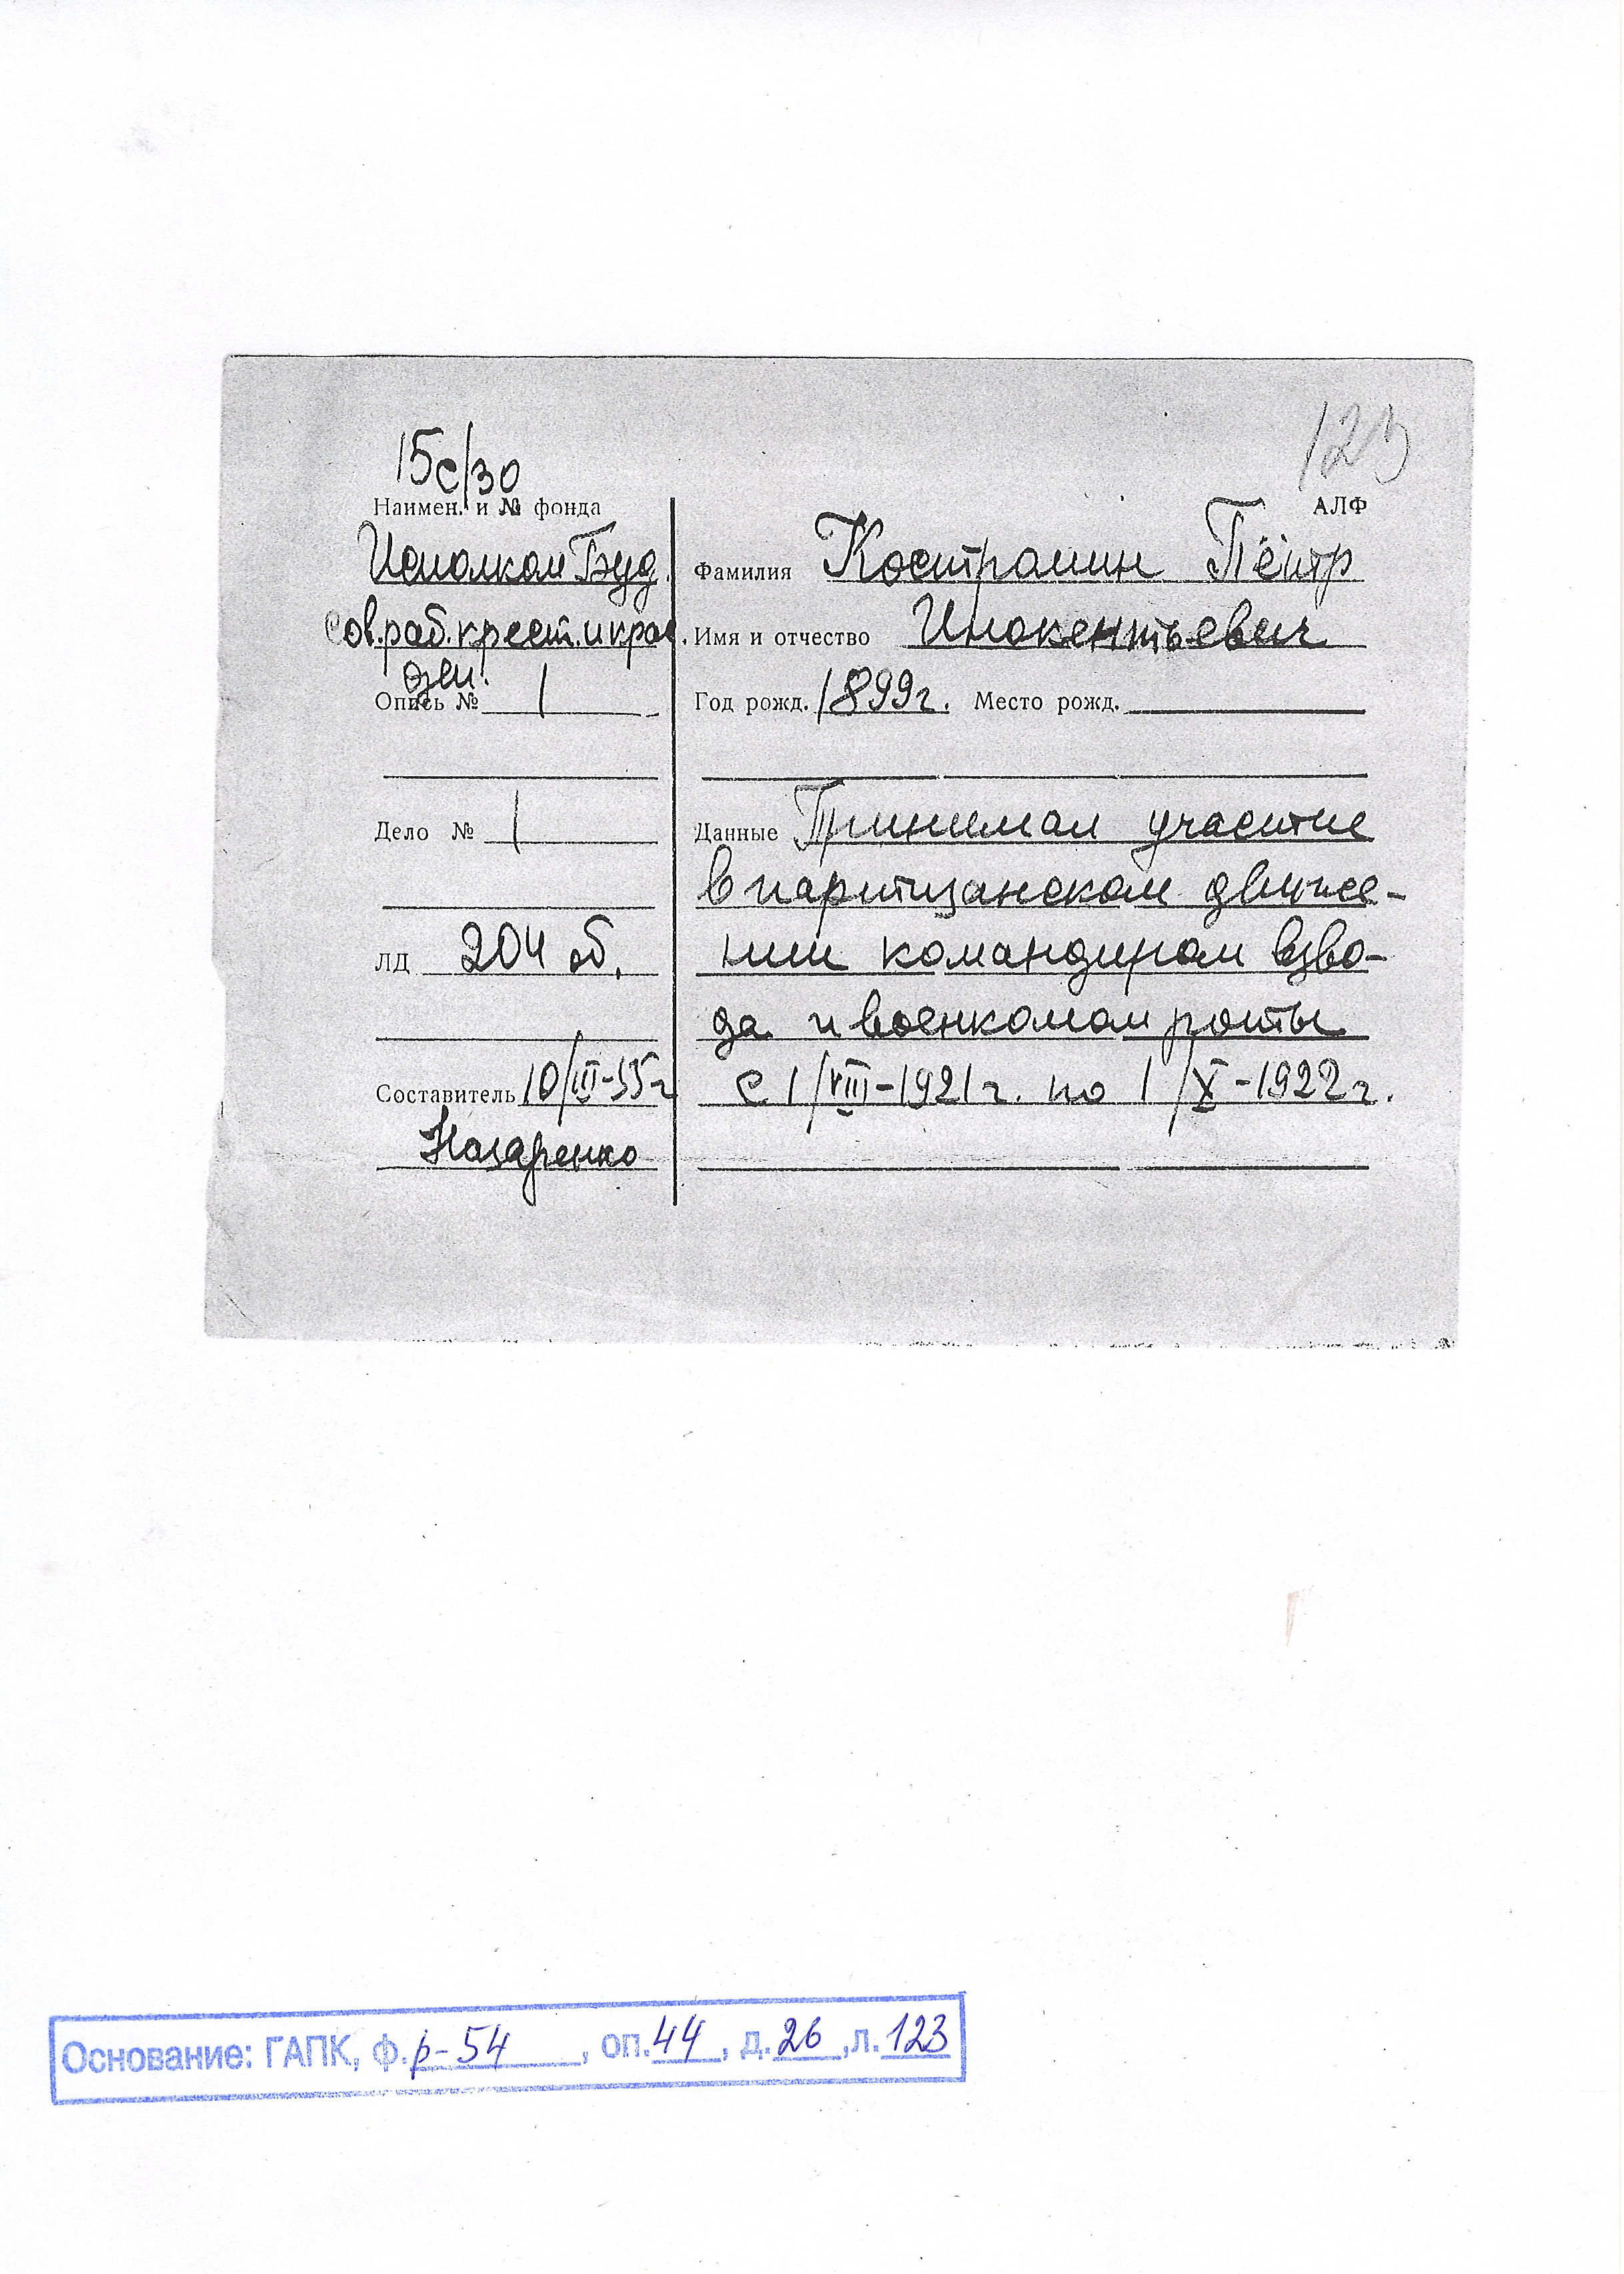 123
15с/30
Наимен. и № фонда
АЛФ
Исполком Буд.
сов. раб. крест. и крас.
деп.
Опись № 1
Дело № 1
ЛД 204 об.
Составитель 10/III-55г
Назаренко
Фамилия Костромин Пётр
Имя и отчество Инокентьевич
Год рожд. 1899г. Место рожд.
Данные Принимал участие
в партизанском движе-
нии командиром взво-
да и военкомом роты
с 1/VIII-1921г. по 1/X-1922г.
Основание: ГАПК, ф. р-54, оп. 44, д. 26, л. 123